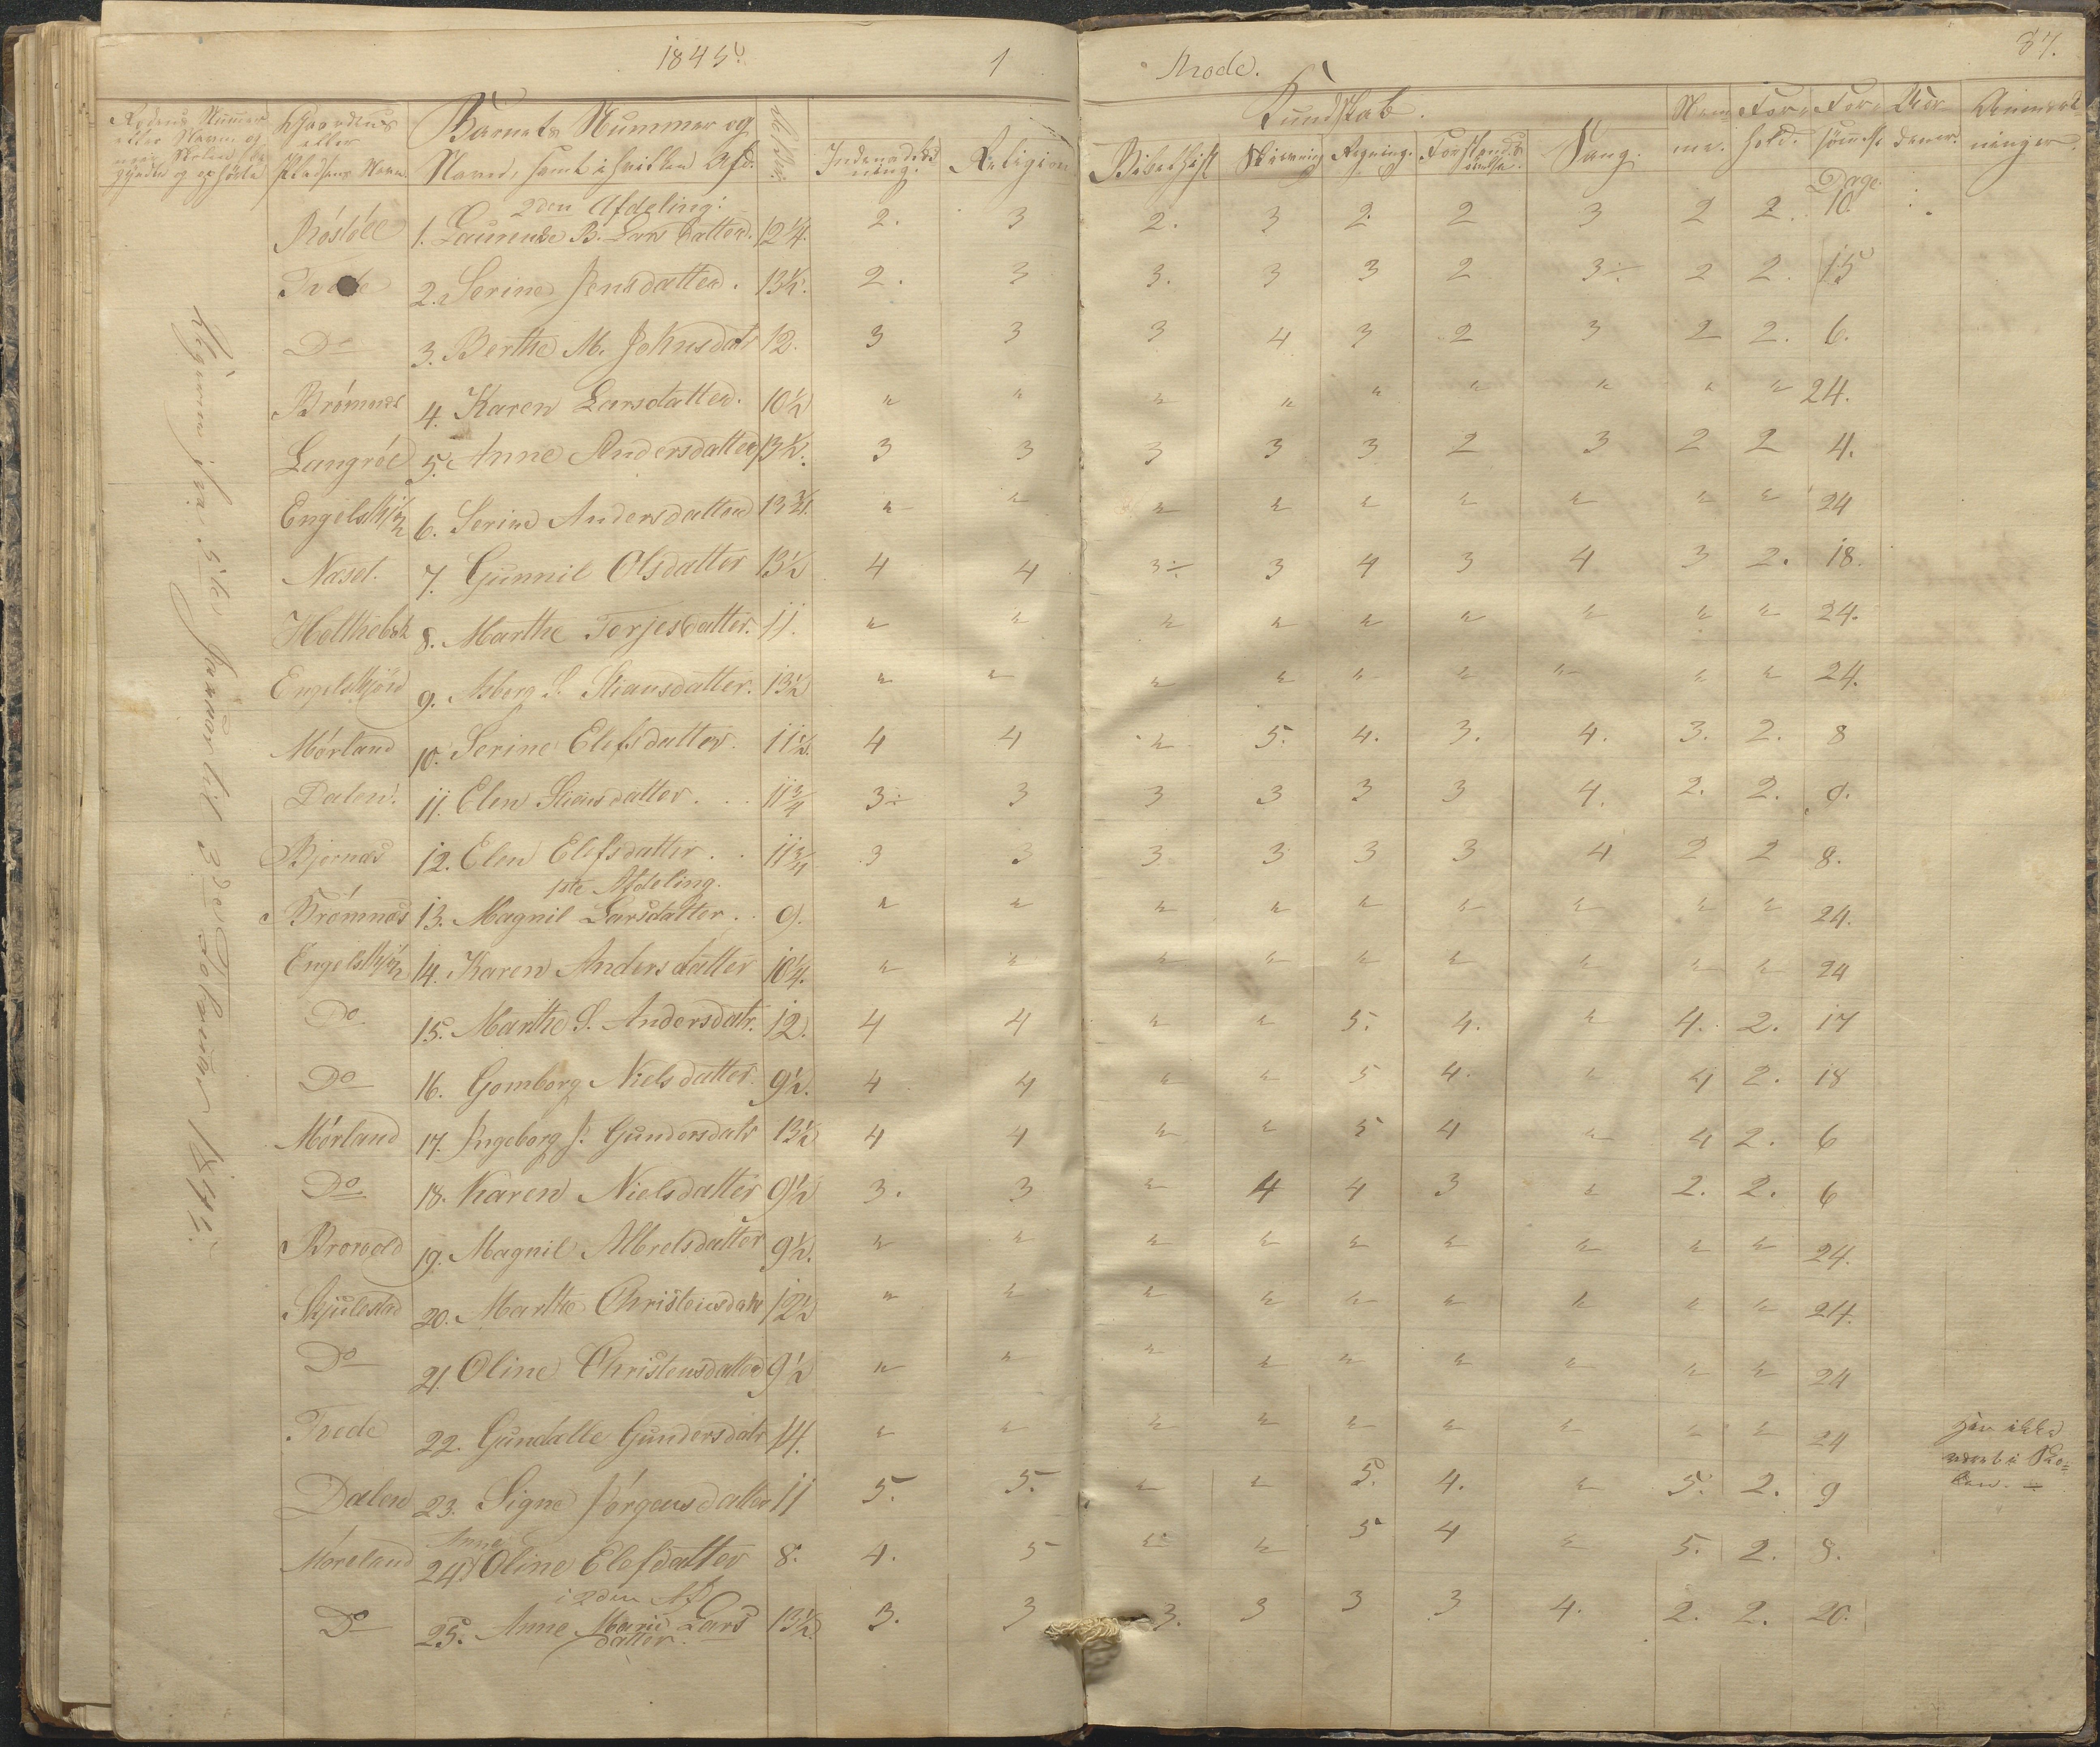 1845
1
Rode.
37.
Rodens Nummer
eller Navn, og
naar Skolen be
gyndte og ophørte
Gaardens
eller
Pladsens Navn
Barnets Nummer og
Navn, samt i hvilken Afd.
Alder
Indenadslæs
ning.
Religion
Kundskab.
Bibelhist
Skrivning
Regning.
Forstands
øvelse.
Sang.
Nem
me.
For
hold.
For
sømmelse
Ver
dener.
Anmærk
ninger.
2den Afdeling.
Dage
1. B. Lars datter. 12¼. 2. 3 2. 3 2 2 3 2 2. 10
Tvede 2. Serine Jensdatter. 13½. 2. 3 3. 3 3 2 3÷ 2 2. 15
Do 3. Berthe M. Johnsdatr 12. 3 3 3 4 3 2 3 2 2. 6.
Brømnes 4. Karen Larsdatter. 10½ " " " " " " " " " 24.
Langröe 5. Anne Andersdatter 13½. 3 3 3 3 3 2 3 2 2 4.
6. Serine Andersdatter 13¾. " " " " " " " " " 24
Næset. 7. Gunnil Olsdatter 13½ 4 4 3÷ 3 4 3 4 3 2. 18.
Holthebak 8. Marthe Terjesdatter. 11. " " " " " " " " " 24.
Engelskjön 9. Asberg S. Stiansdatter. 13½ " " " " " " " " " 24.
Mörland 10. Serine Elefsdatter. 11½. 4 4 " 5. 4. 3. 4. 3. 2. 8
Dalen. 11. Elen Stiansdatter. 11¾ 3÷ 3 3 3 3 3 4. 2. 2. 9.
Bjernæs 12. Elen Elefsdatter. 11¾ 3 3 3 3 3 3 4 2 2 8.
1ste Afdeling.
Brömnæs 13. Magnil Larsdatter. 9. " " " " " " " " " 24.
14. Karen Andersdatter 10¼. " " " " " " " " " 24
Do 15. Marthe S. Andersdatr. 12. 4 4 " " 5. 4. " 4. 2. 17
Do 16. Gomborg Nielsdatter. 9½. 4 4 " " 5 4. " 4 2. 18
Mörland 17. Ingeborg J. Gundersdatr 13½ 4 4 " " 5 4 " 4 2. 6
Do 18. Karen Nielsdatter 9½ 3. 3 " 4 4 3 " 2. 2. 6
19. Magnil 9½. " " " " " " " " " 24.
Skjulestad 20. Marthe Christensdatr 12½ " " " " " " " " " 24.
Do 21. Oline Christensdatter 9½ " " " " " " " " " 24
Tvede 22. Gundelle Gundersdatr 14. " " " " " " " " " 24 ikke
været i Sko=
len.
Dalen 23. Signe Jörgensdatter 11 5. 5. " " 5. 4. " 5. 2. 9
Anne
Möreland 24. Oline Elefsdatter 8. 4. 5 " " 5 4 " 5. 2. 8.
i 2den Af
Do 25. Anne Marie Lars 13½. 3. 3 3. 3 3 3 4. 2. 2. 20.
datter.
fra 5te Januar til 3de Februar 1845.